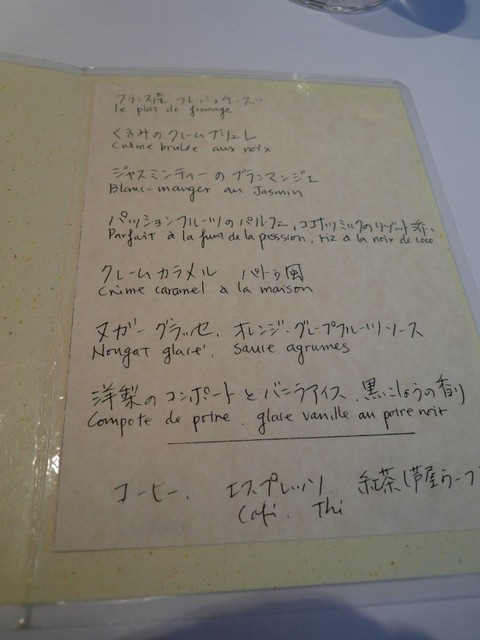 フランス産 フレッシュチーズ
le plat de fromage
くるみのクレームブリュレ
Crème brulée aux noix
ジャスミンティーのブランマンジェ
Blanc-manger au Jasmin
パッションフルーツのパルフェ、ココナッツミルクのリゾット添
Parfait à la fruit de la passion, riz à la noix de coco
クレームカラメル パトゥ風
Crème caramel à la maison
ヌガーグラッセ、オレンジ・グレープフルーツソース
Nougat glacé, Sauce agrumes
洋梨のコンポートとバニラアイス、黒いこしょうの香り
Compote de poire, glace vanille au poire noir
コーヒー、 エスプレッソ 紅茶(芦屋ウーフ
Café. Thé